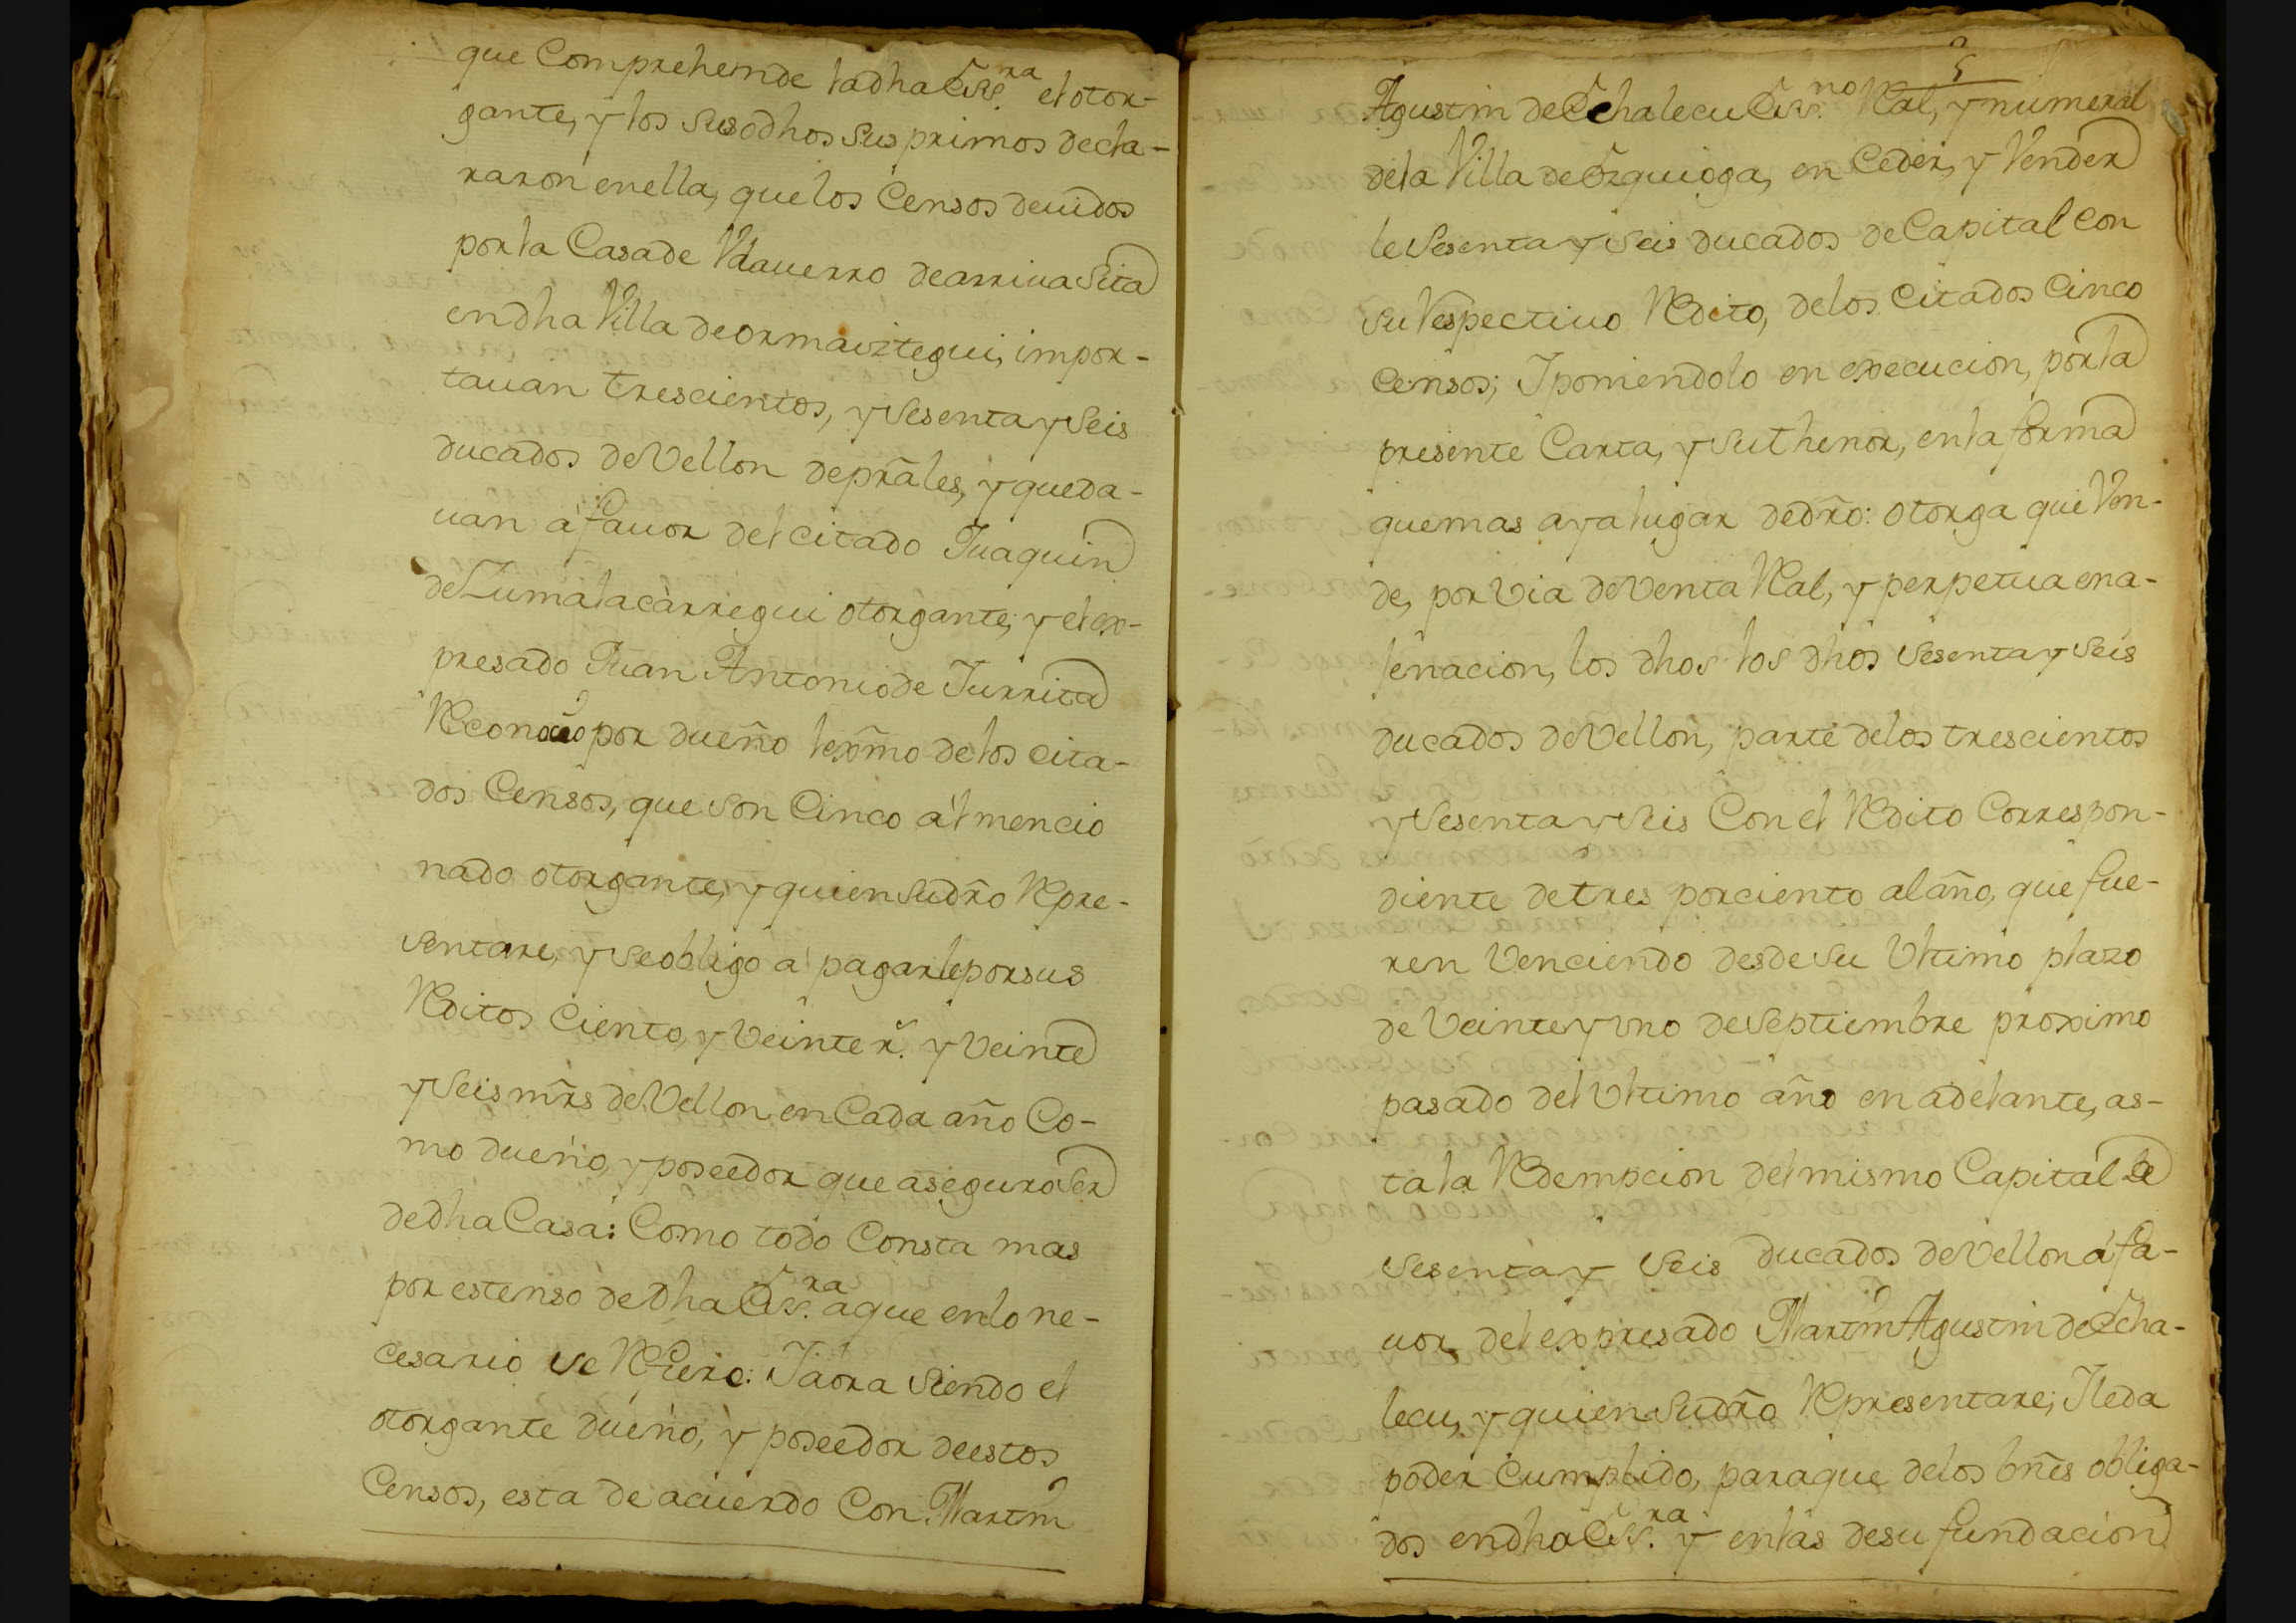 que Comprehemde ladha Ess.ra el otor-
gante, y los susodhos sus primos decla-
raron en ella, que los Censos deuidos
por la Casa de Vdauerro de arriua Sita
en dha Villa de ormaiztegui, impor-
tauan trescientos, y Sesenta y Seis
ducados de Vellon de prāles, y queda-
uan á fauor del citado Juaquin
de Zumalacàrregui otorgante; y el ex-
presado Juan Antonio de Iurrita
Reconocio por dueño lexmo de los cita-
dos Censos, que son Cinco ál mencio
nado otorgante, y quien su dr̃o Repre-
sentare, y se obligo a pagarle por sus
Reditos Ciento, y Veinte r.̃ y Veinte
y Seis mr̃s de Vellon en Cada año Co-
mo dueño, y poseedor que aseguro Ser
de dha Casa: Como todo Consta mas
por estenso de dha Ess.ra a que en lo ne-
cesario se Refiere: I aora Siendo el
otorgante dueño, y poseedor de estos
Censos, esta de acuerdo Con Martin
5
Agustin de Echalecu Ess.no Real, y numeral
de la Villa de Ezquioga, en Ceder, y Vender
le Sesenta y Seis ducados de Capital con
su Respectiuo Redito, de los Citados Cinco
Censos; I poniendolo en execucion, por la
presente Carta, y su thenor, en la forma
que mas aya lugar de dr̃o: otorga que Ven-
de, por Via de Venta Real, y perpetua ena-
lenacion, los dhos los dhos Sesenta y Seis
ducados de Vellon, parte de los trescientos
y Sesenta y Seis Con el Redito Correspon-
diente de tres por ciento al año, que fue-
ren Venciendo desde su Vltimo plazo
de Veinte y vno de Septiembre proximo
pasado del Vltimo año en adelante, as-
ta la Redempcion del mismo Capital de
Sesenta y Seis ducados de Vellon á fa-
uor del expresado Martin Agustin de Echa-
lecu, y quien su dr̃o Representare; I le da
poder Cumplido, para que de los bñes obliga-
dos en dha Ess.ra y en las de su fundacion